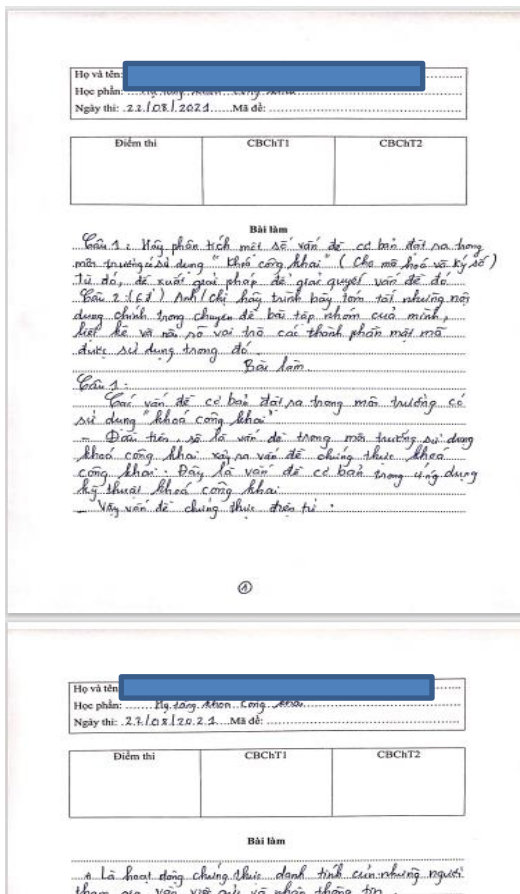 Họ và tên:
Học phần: Hạ tầng khóa công khai
Ngày thi: 22/08/2021 Mã đề:
Điểm thi CBChT1 CBChT2
Bài làm
Câu 1: Hãy phân tích một số vấn đề cơ bản đặt ra trong
môi trường có sử dụng "khoá công khai" (cho mã hoá và ký số)
Từ đó, đề xuất giải pháp để giải quyết vấn đề đó.
Câu 2: (6đ) Anh/chị hãy trình bày tóm tắt những nội
dung chính trong chuyên đề bài tập nhóm của mình,
liệt kê và nói rõ vai trò các thành phần mật mã
được sử dụng trong đó.
Bài làm.
Câu 1:
Các vấn đề cơ bản đặt ra trong môi trường có
sử dụng "khoá công khai"
- Đầu tiên, sẽ là vấn đề trong môi trường sử dụng
khoá công khai xảy ra vấn đề chứng thực khoá
công khai. Đây là vấn đề cơ bản trong ứng dụng
kỹ thuật khoá công khai
- Vậy vấn đề chứng thực điện tử:
1
Họ và tên
Học phần: Hạ tầng khóa công khai
Ngày thi: 22/08/2021 Mã đề:
Điểm thi CBChT1 CBChT2
Bài làm
+ Là hoạt động chứng thực danh tính của những người
tham gia vào việc gửi và nhận thông tin